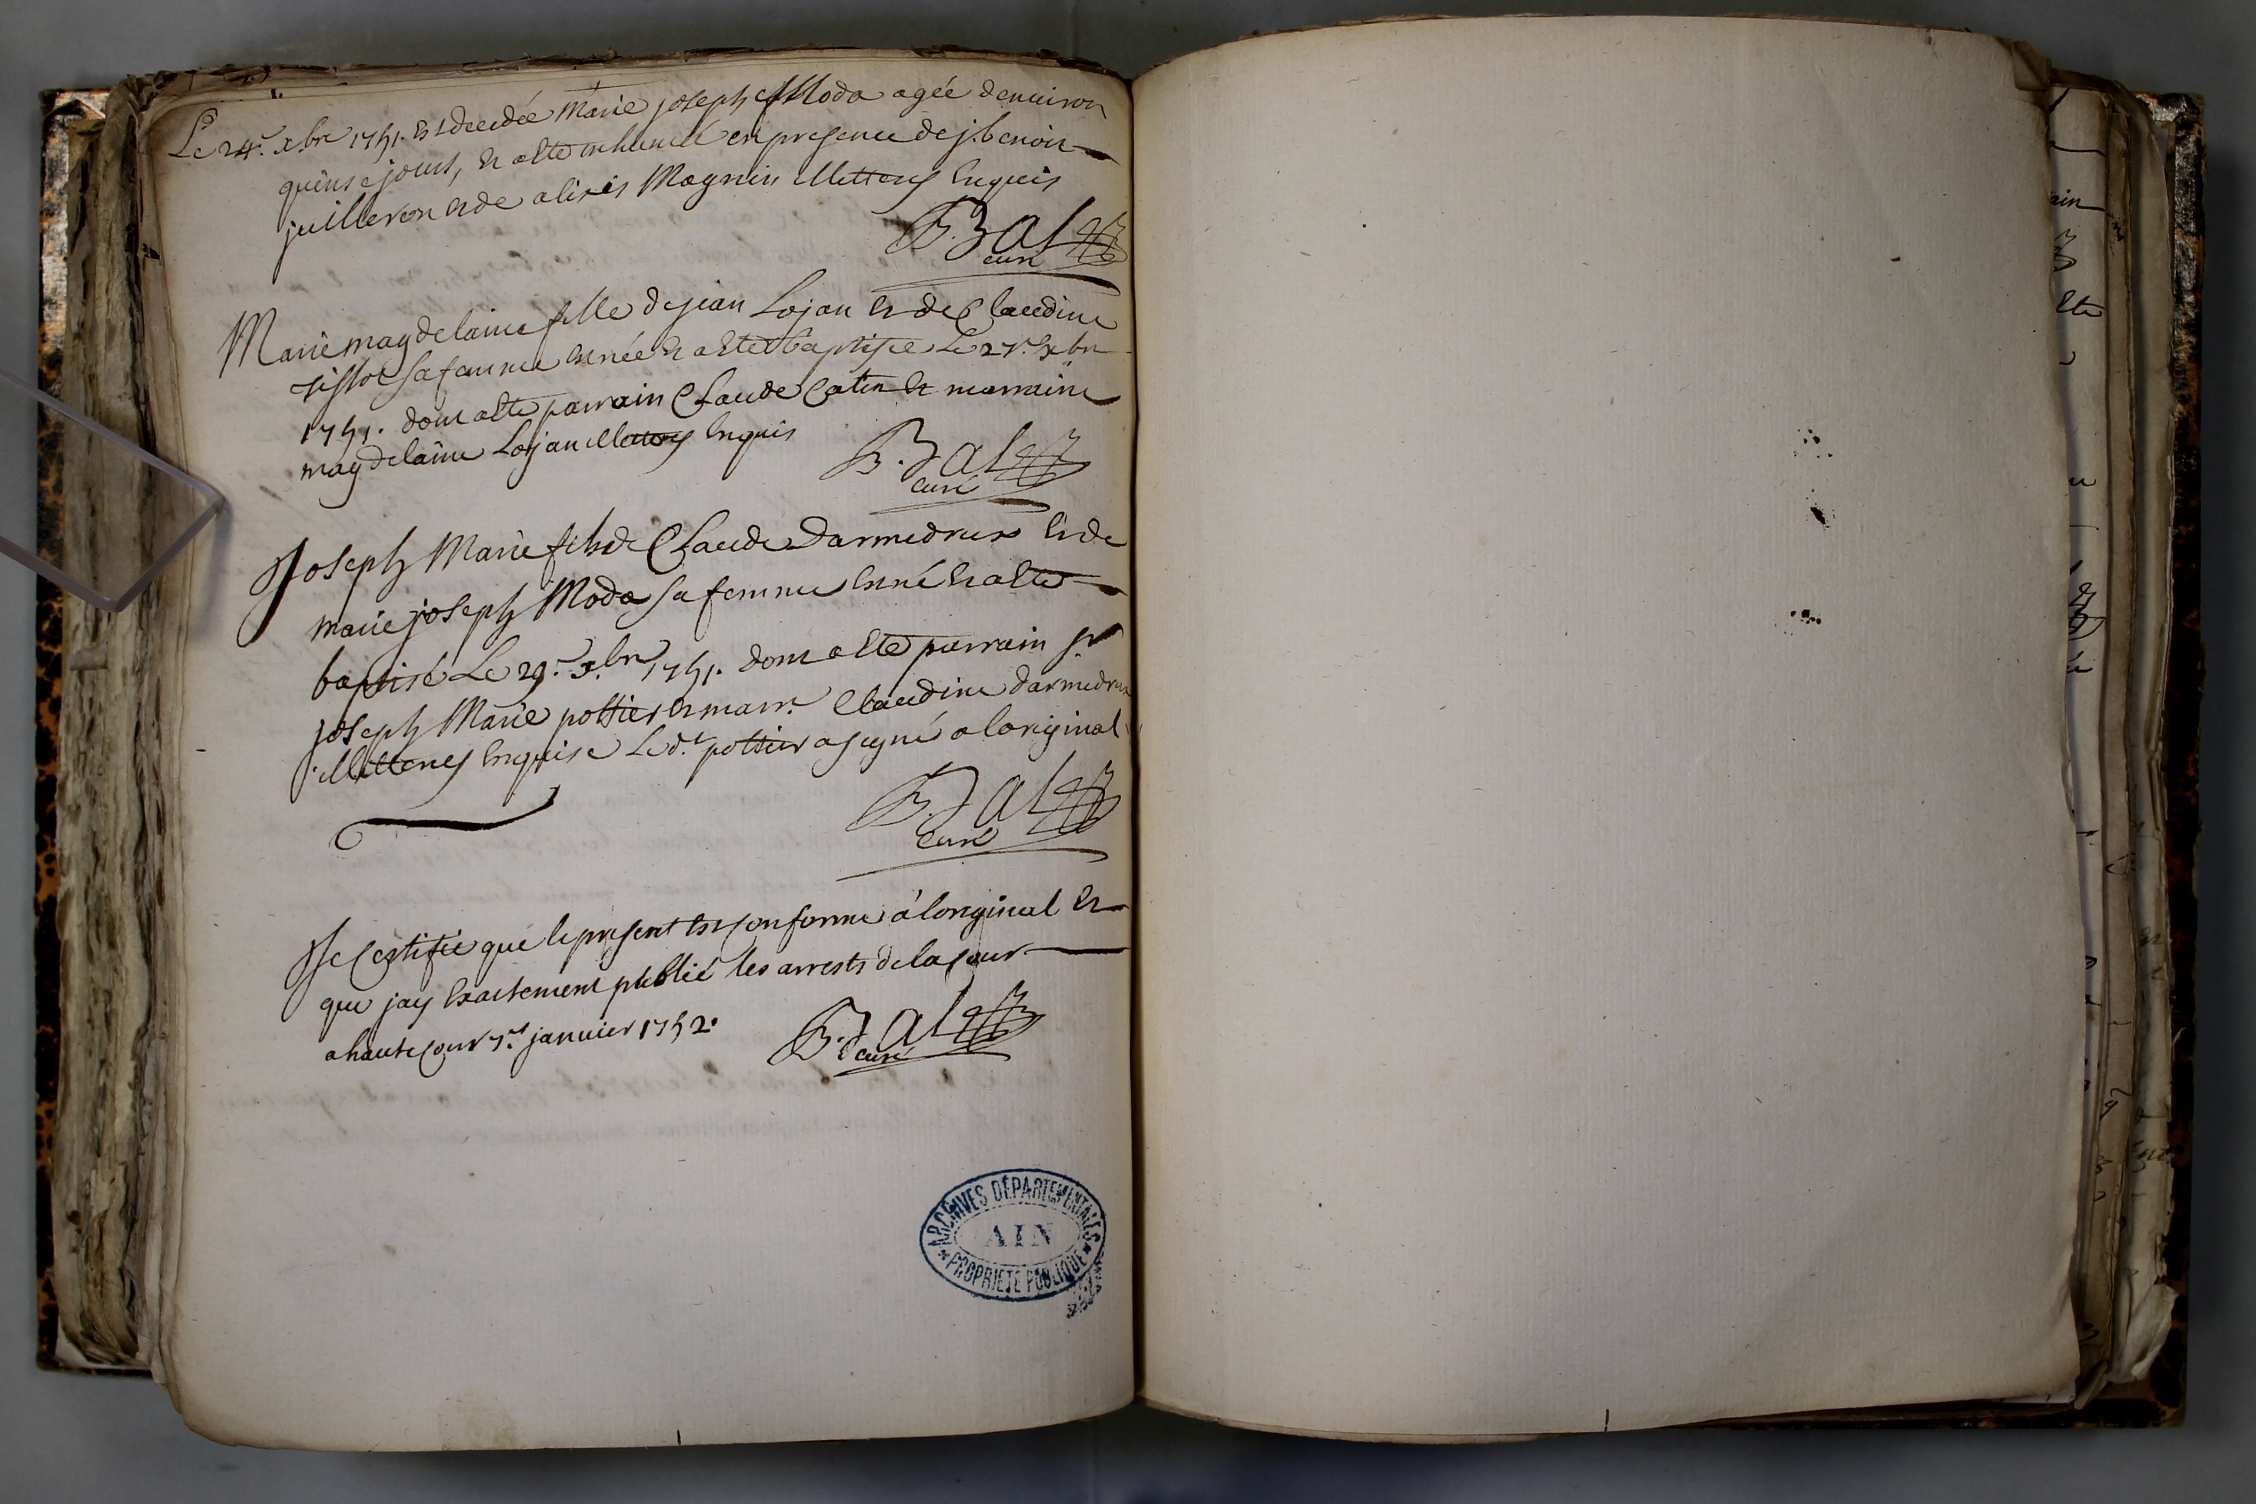 Le 24.e xbre 1751. est decedée Marie joseph Moda agée denuiron
quinse jours, et a ete inhumeé en presence de j: benoit
juilleron et de alixis Magnin illitterés enquis
B. Bal
curé
Marie magdelaine fille de jean Lojan et de Claudine
tissot sa femme est née et a ete baptisée Le 27.e xbre
1751. dont a ete parrain Claude Catin et marraine
magdelaine Lojan illitterés enquis
B. Bal
curé
Joseph Marie fils de Claude Darmedrux et de
marie joseph Moda sa femme est né et a ete
baptisé Le 29.e xbre 1751. dont a ete parrain sr
joseph Marie pottier et marr.e Claudine darmedrux
illitterés enquise Led.t pottier a signé a loriginal
B. Bal
Curé
Je Certifie que le present est conforme a loriginal et
que jay exactement publié les arrests de la cour
a hautecour 7.e janvier 1752.
B. Bal
curé
ARCHIVES DÉPARTEMENTALES
AIN
PROPRIETE PUBLIQUE